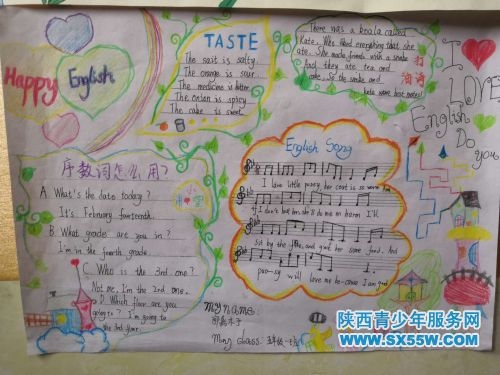 Happy
English
TASTE
The salt is salty.
The orange is sour
The medicine is bitter
The onion is spicy
The cake is sweet
There was a koala called
Kate. Who liked everything that she
ate. She made friends with a snake
and they ate tea and
cake. So the snake and
kate were best mates!
打
油
诗
I
LOVE
English
Do
you
序数词怎么用?
小
课堂
A. What's the date today?
It's February fourteenth.
B. What grade are you in?
I'm in the fourth grade.
C. Who is the 3rd one?
Not me, I'm the 2nd one.
D. Which floor are you
going to? I'm going to
the 3rd floor.
English Song
I love little pussy her coat is so warm
If I don't hurt her she'll do me no harm I'll
Sit by the fire and give her some food. And
pussy will love me because I am good
My name:
My class:
陕西青少年服务网
www.sx55w.com